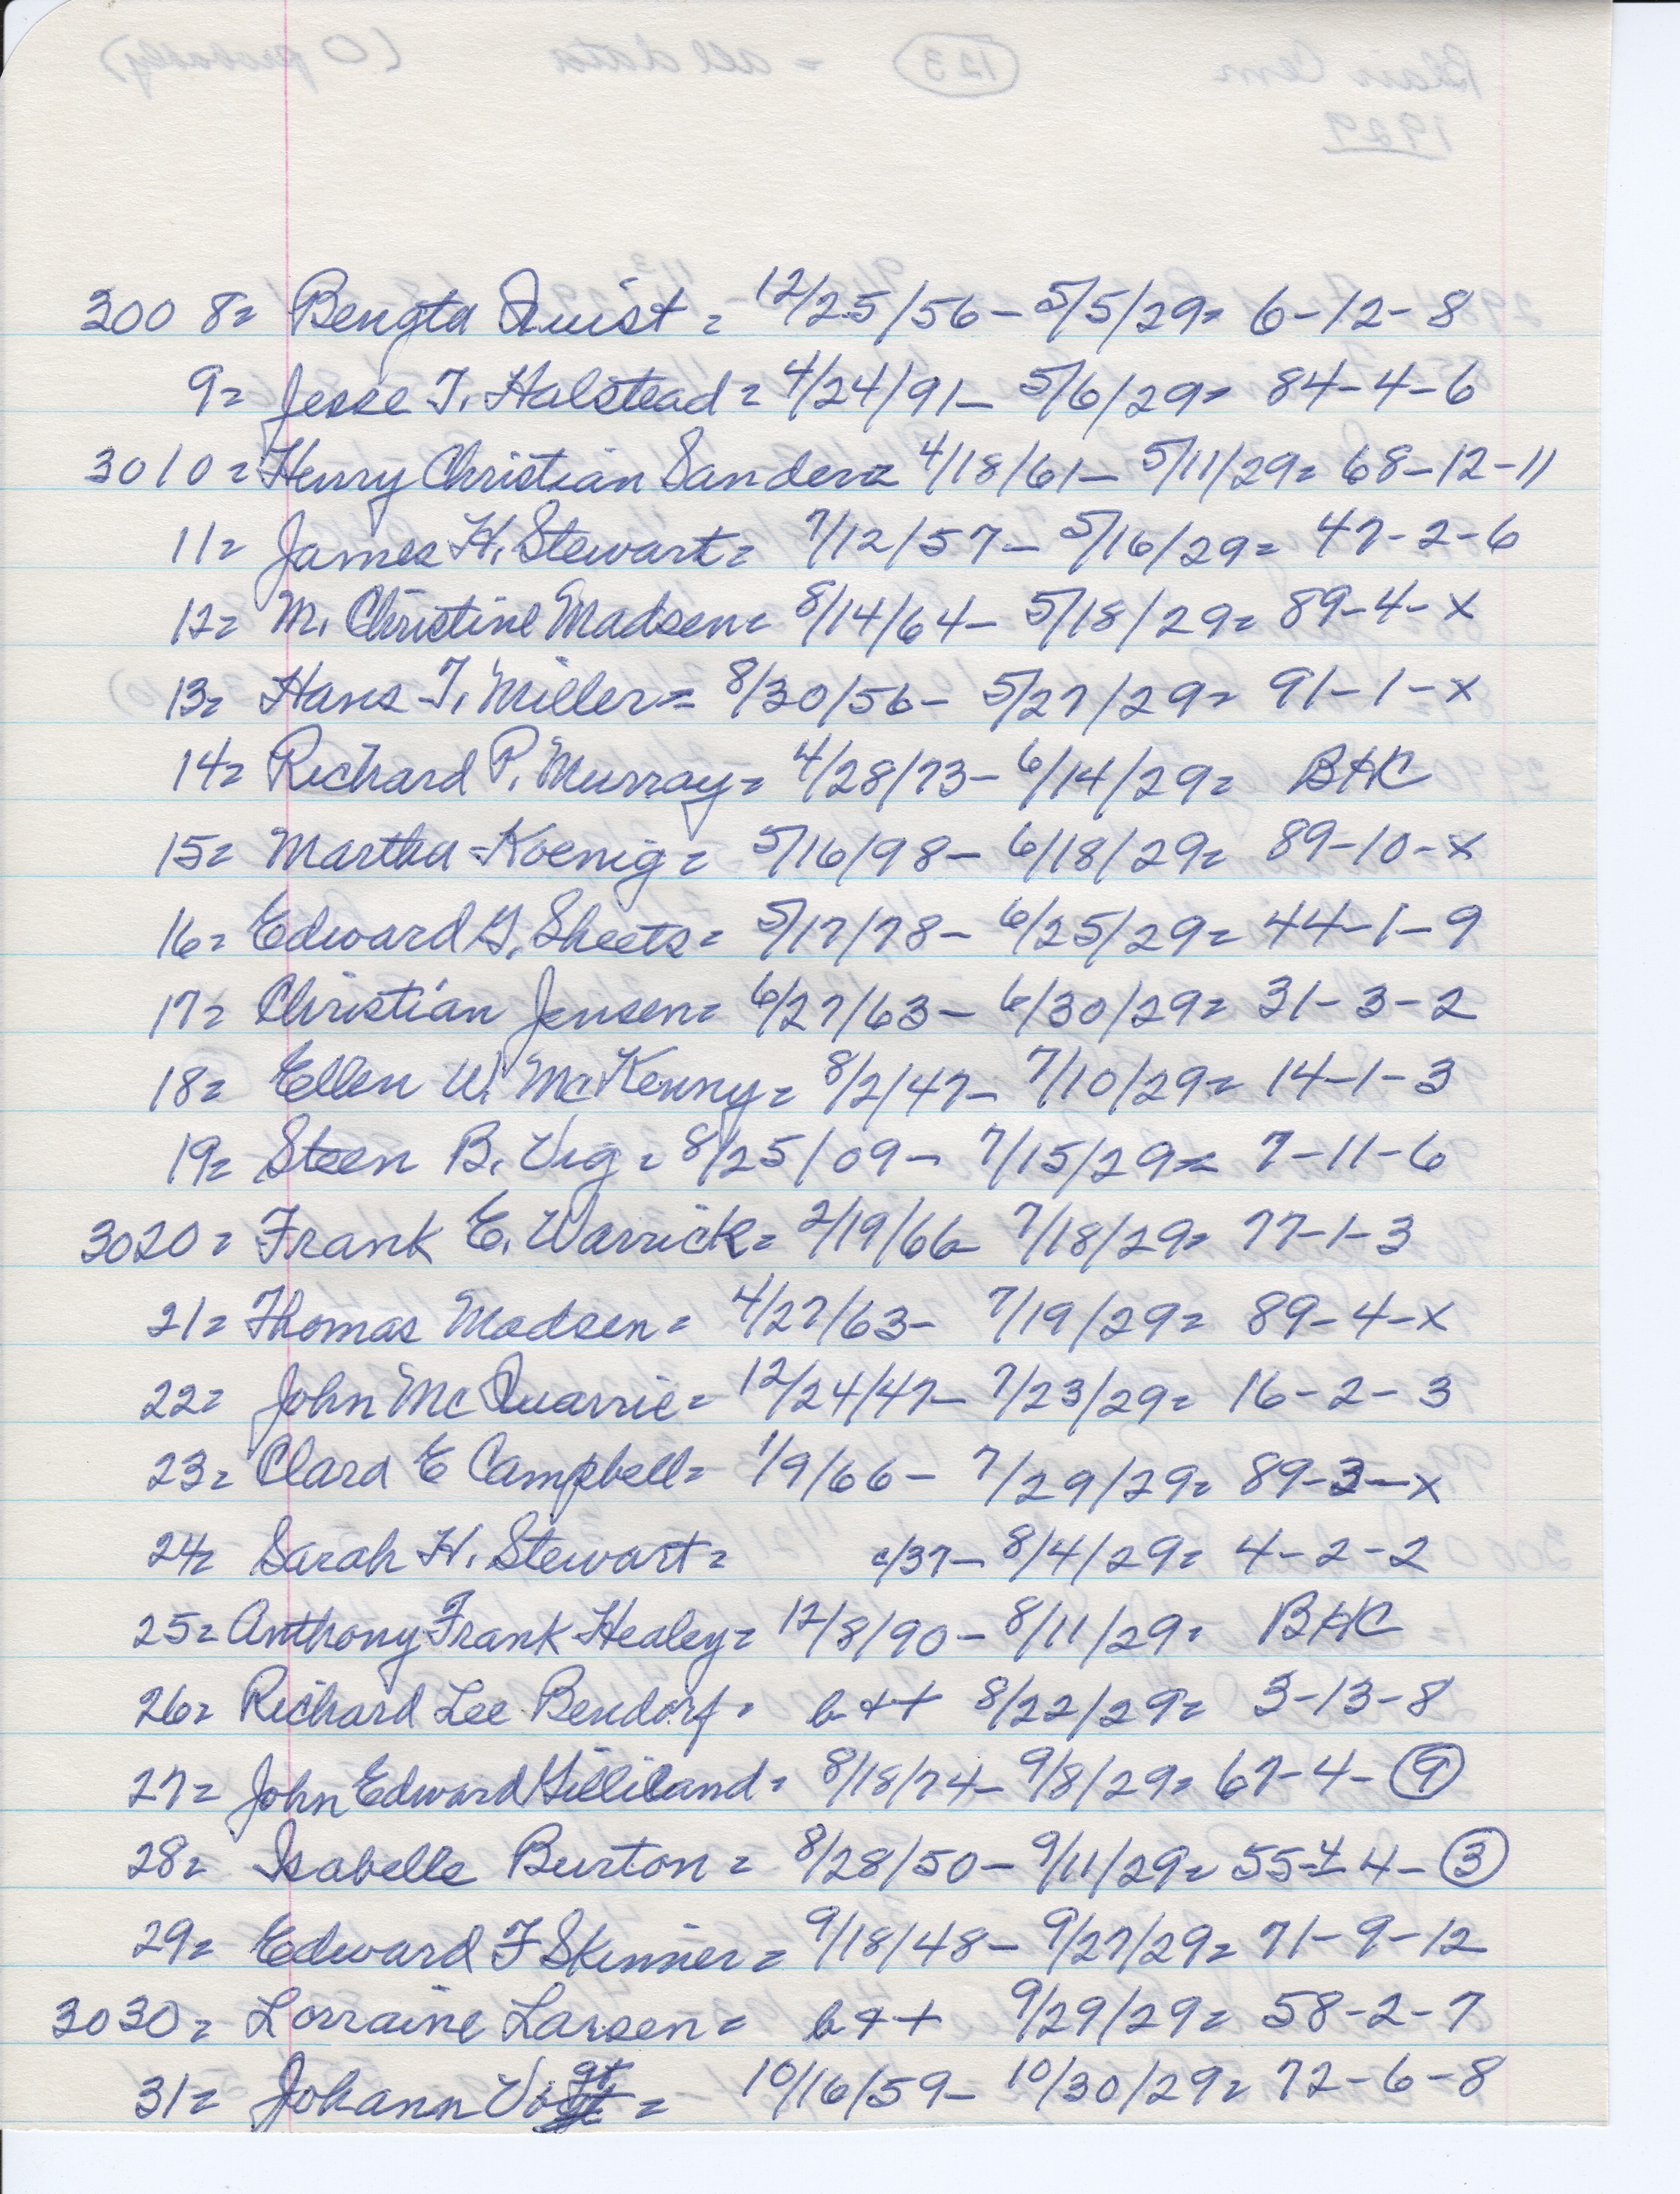 3008= Bengta Quist = 12/25/56 - 5/5/29= 6-12-8
9= Jesse T. Halstead = 4/24/91 - 5/6/29= 84-4-6
3010= Henry Christian Sander= 4/18/61 - 5/11/29= 68-12-11
11= James H. Stewart= 7/12/57 - 5/16/29= 47-2-6
12= M. Christine Madsen= 8/14/64 - 5/18/29= 89-4-x
13= Hans T. Miller= 8/30/56 - 5/27/29= 91-1-x
14= Richard P. Murray= 4/28/73 - 6/14/29= BHC
15= Martha Koenig= 5/16/98 - 6/18/29= 89-10-x
16= Edward G. Sheets= 5/17/78 - 6/25/29= 44-1-9
17= Christian Jensen= 6/27/63 - 6/30/29= 31-3-2
18= Ellen W. McKenny= 8/2/47 - 7/10/29= 14-1-3
19= Steen B. Vig= 8/25/09 - 7/15/29= 7-11-6
3020= Frank E. Warrick= 2/19/66 - 7/18/29= 77-1-3
21= Thomas Madsen= 4/27/63 - 7/19/29= 89-4-x
22= John McQuarrie= 12/24/47 - 7/23/29= 16-2-3
23= Clara E Campbell= 1/9/66 - 7/29/29= 89-3-x
24= Sarah H. Stewart= c/37 - 8/4/29= 4-2-2
25= Anthony Frank Healey= 12/8/90 - 8/11/29= BHC
26= Richard Lee Bendorf= b++ 8/22/29= 3-13-8
27= John Edward Gilliland= 8/18/74 - 9/8/29= 67-4-9
28= Isabelle Burton= 8/28/50 - 9/11/29= 55-4-3
29= Edward F Skinner= 9/18/48 - 9/27/29= 71-9-12
3030= Lorraine Larsen= b++ 9/29/29= 58-2-7
31= Johann Vogt= 10/16/59 - 10/30/29= 72-6-8